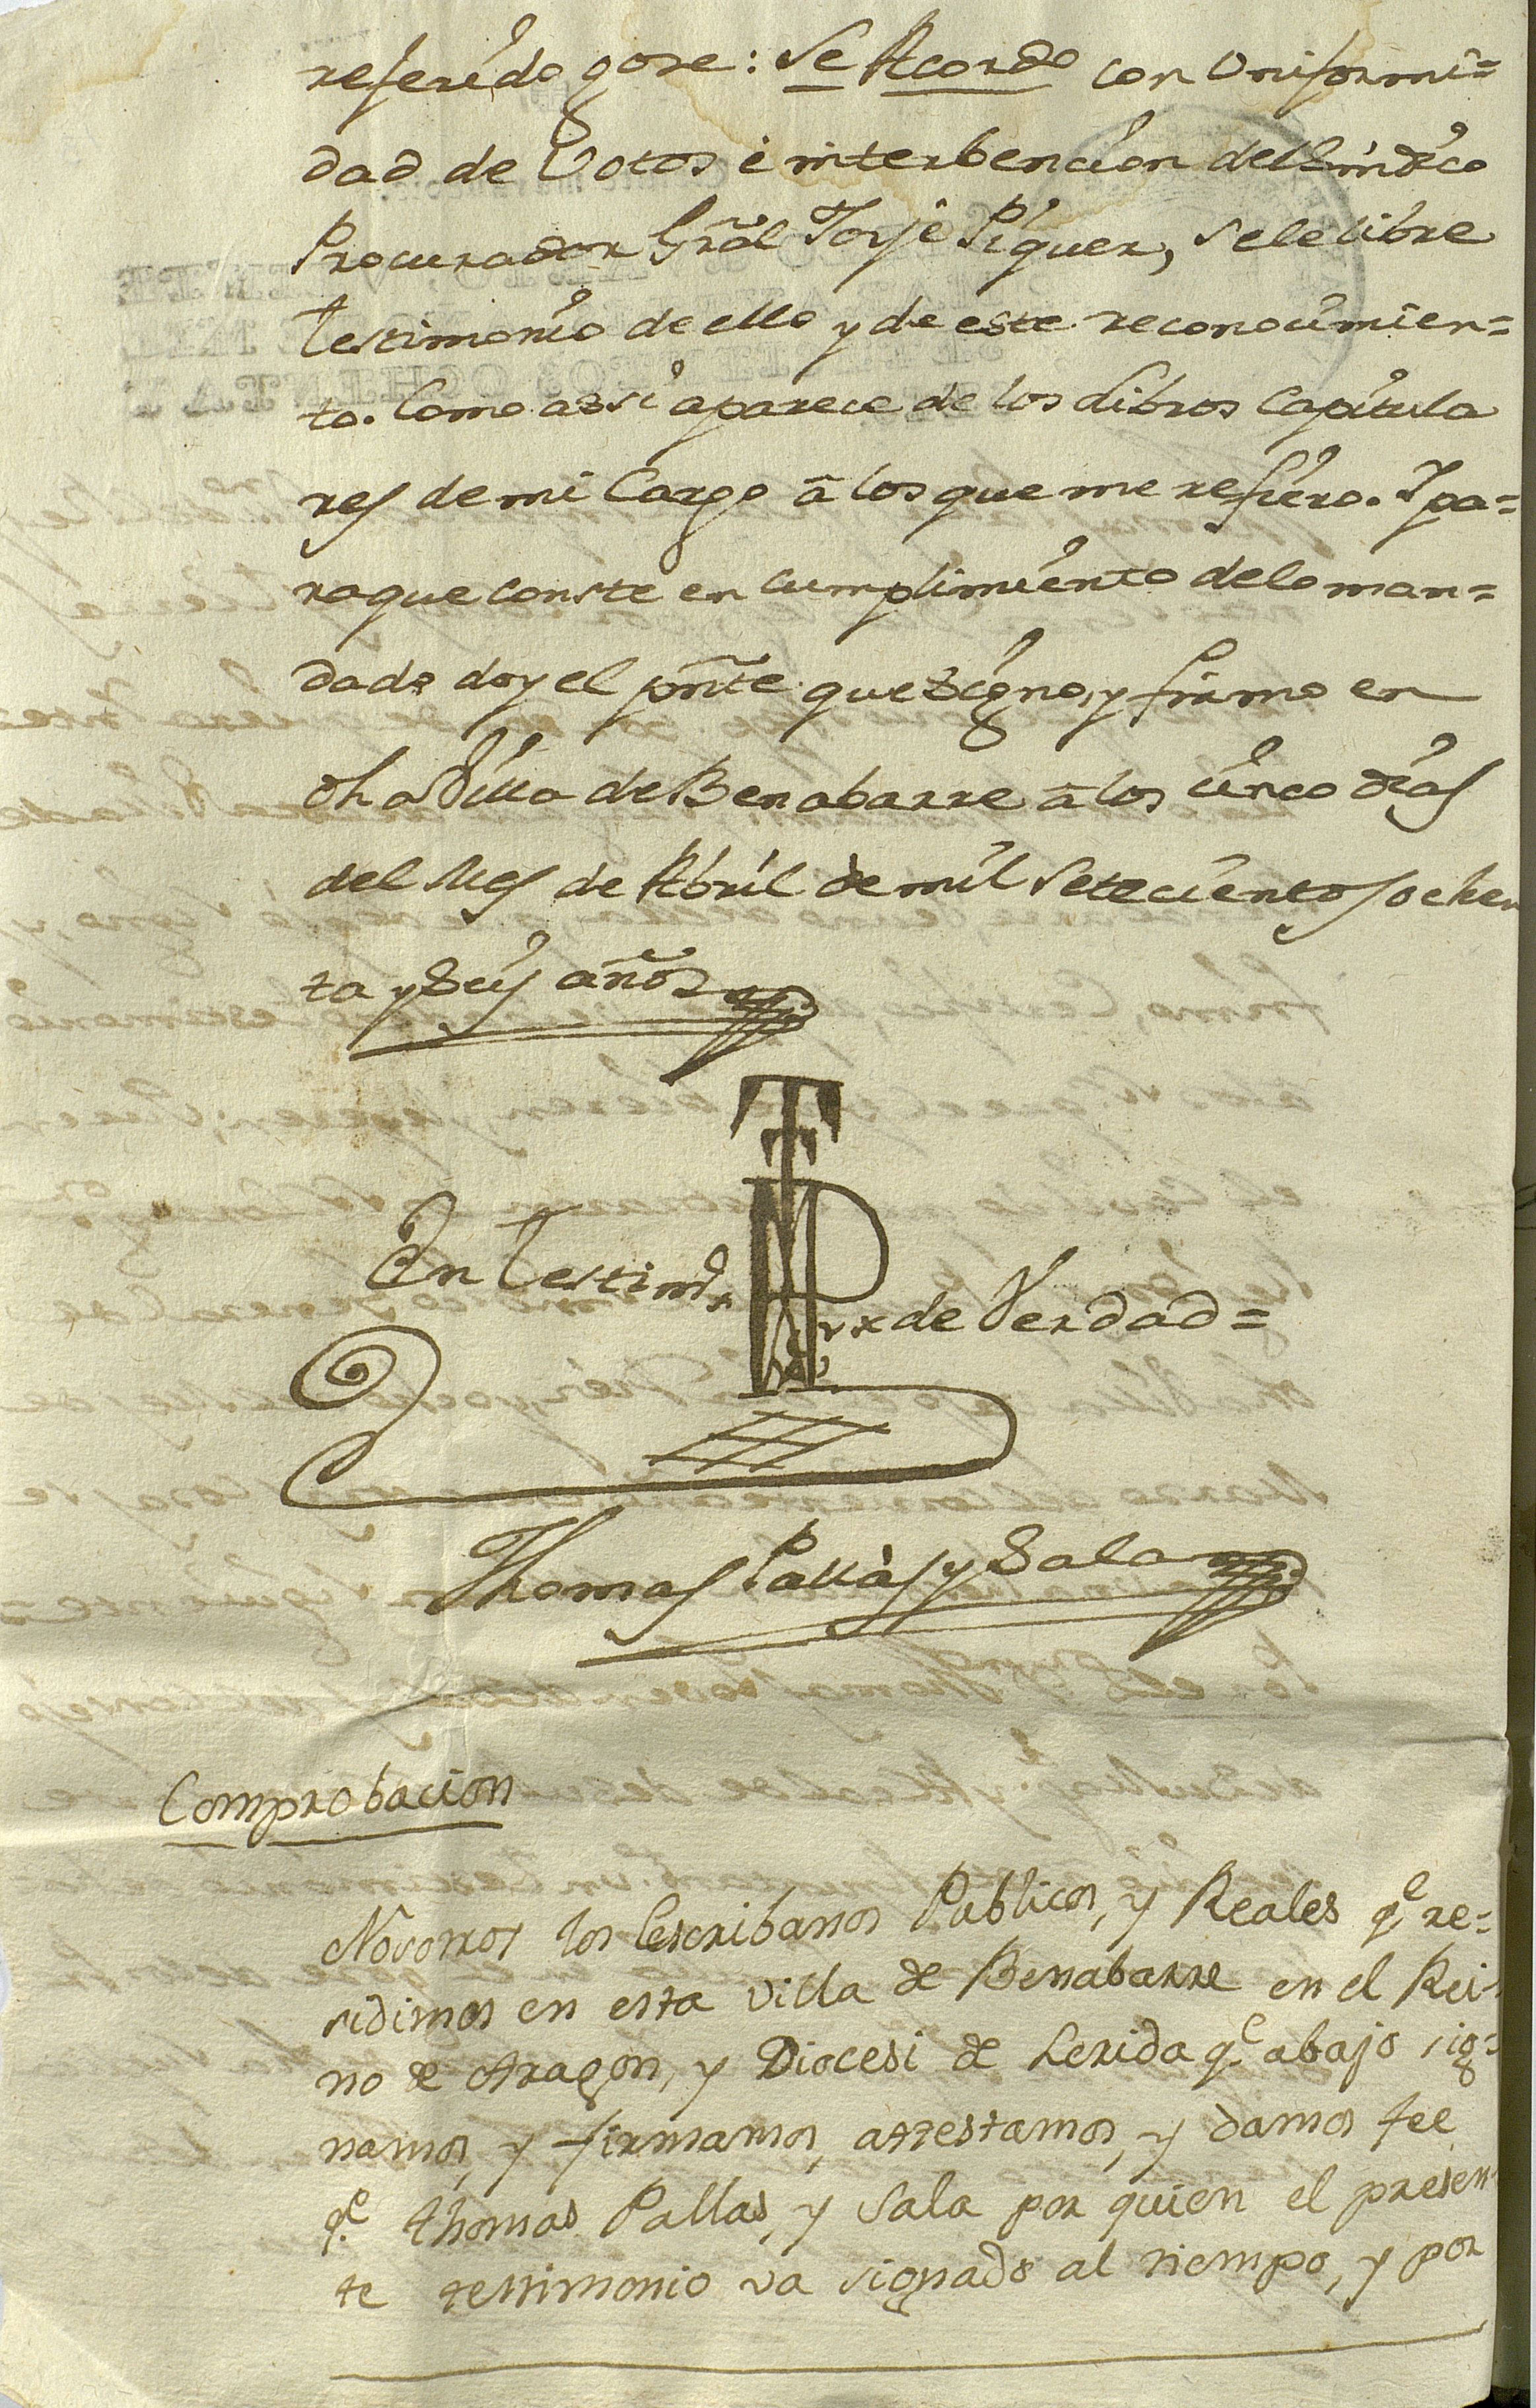 referido gose: Se Acordo con Uniformi=
dad de Votos è interbencion del Sindico
Procurador Grãl Jorje Piquer, se le libre
testimonio de ello y de este reconocimien=
to. Como assi aparece de los Libros Capitula
res de mi Cargo â los que me refiero. Y pa=
ra que conste en cumplimiento de lo man=
dado doy el pñte que Signo, y firmo en
dha Villa de Benabarre â los cinco dias
del Mes de Abril de mil Setecientos ochen
ta y Seis años
En testimº de Verdad=
Thomas Pallàs y Sala
Comprobacion
Nosotros los Escribanos Publicos, y Reales qe re=
sidimos en esta Villa de Benabarre en el Rei-
no de Aragon, y Diocesi de Lerida qe abajo sig=
namos, y firmamos, attestamos, y damos fee
qe thomas Pallas, y Sala por quien el presen-
te testimonio va signado al tiempo, y por